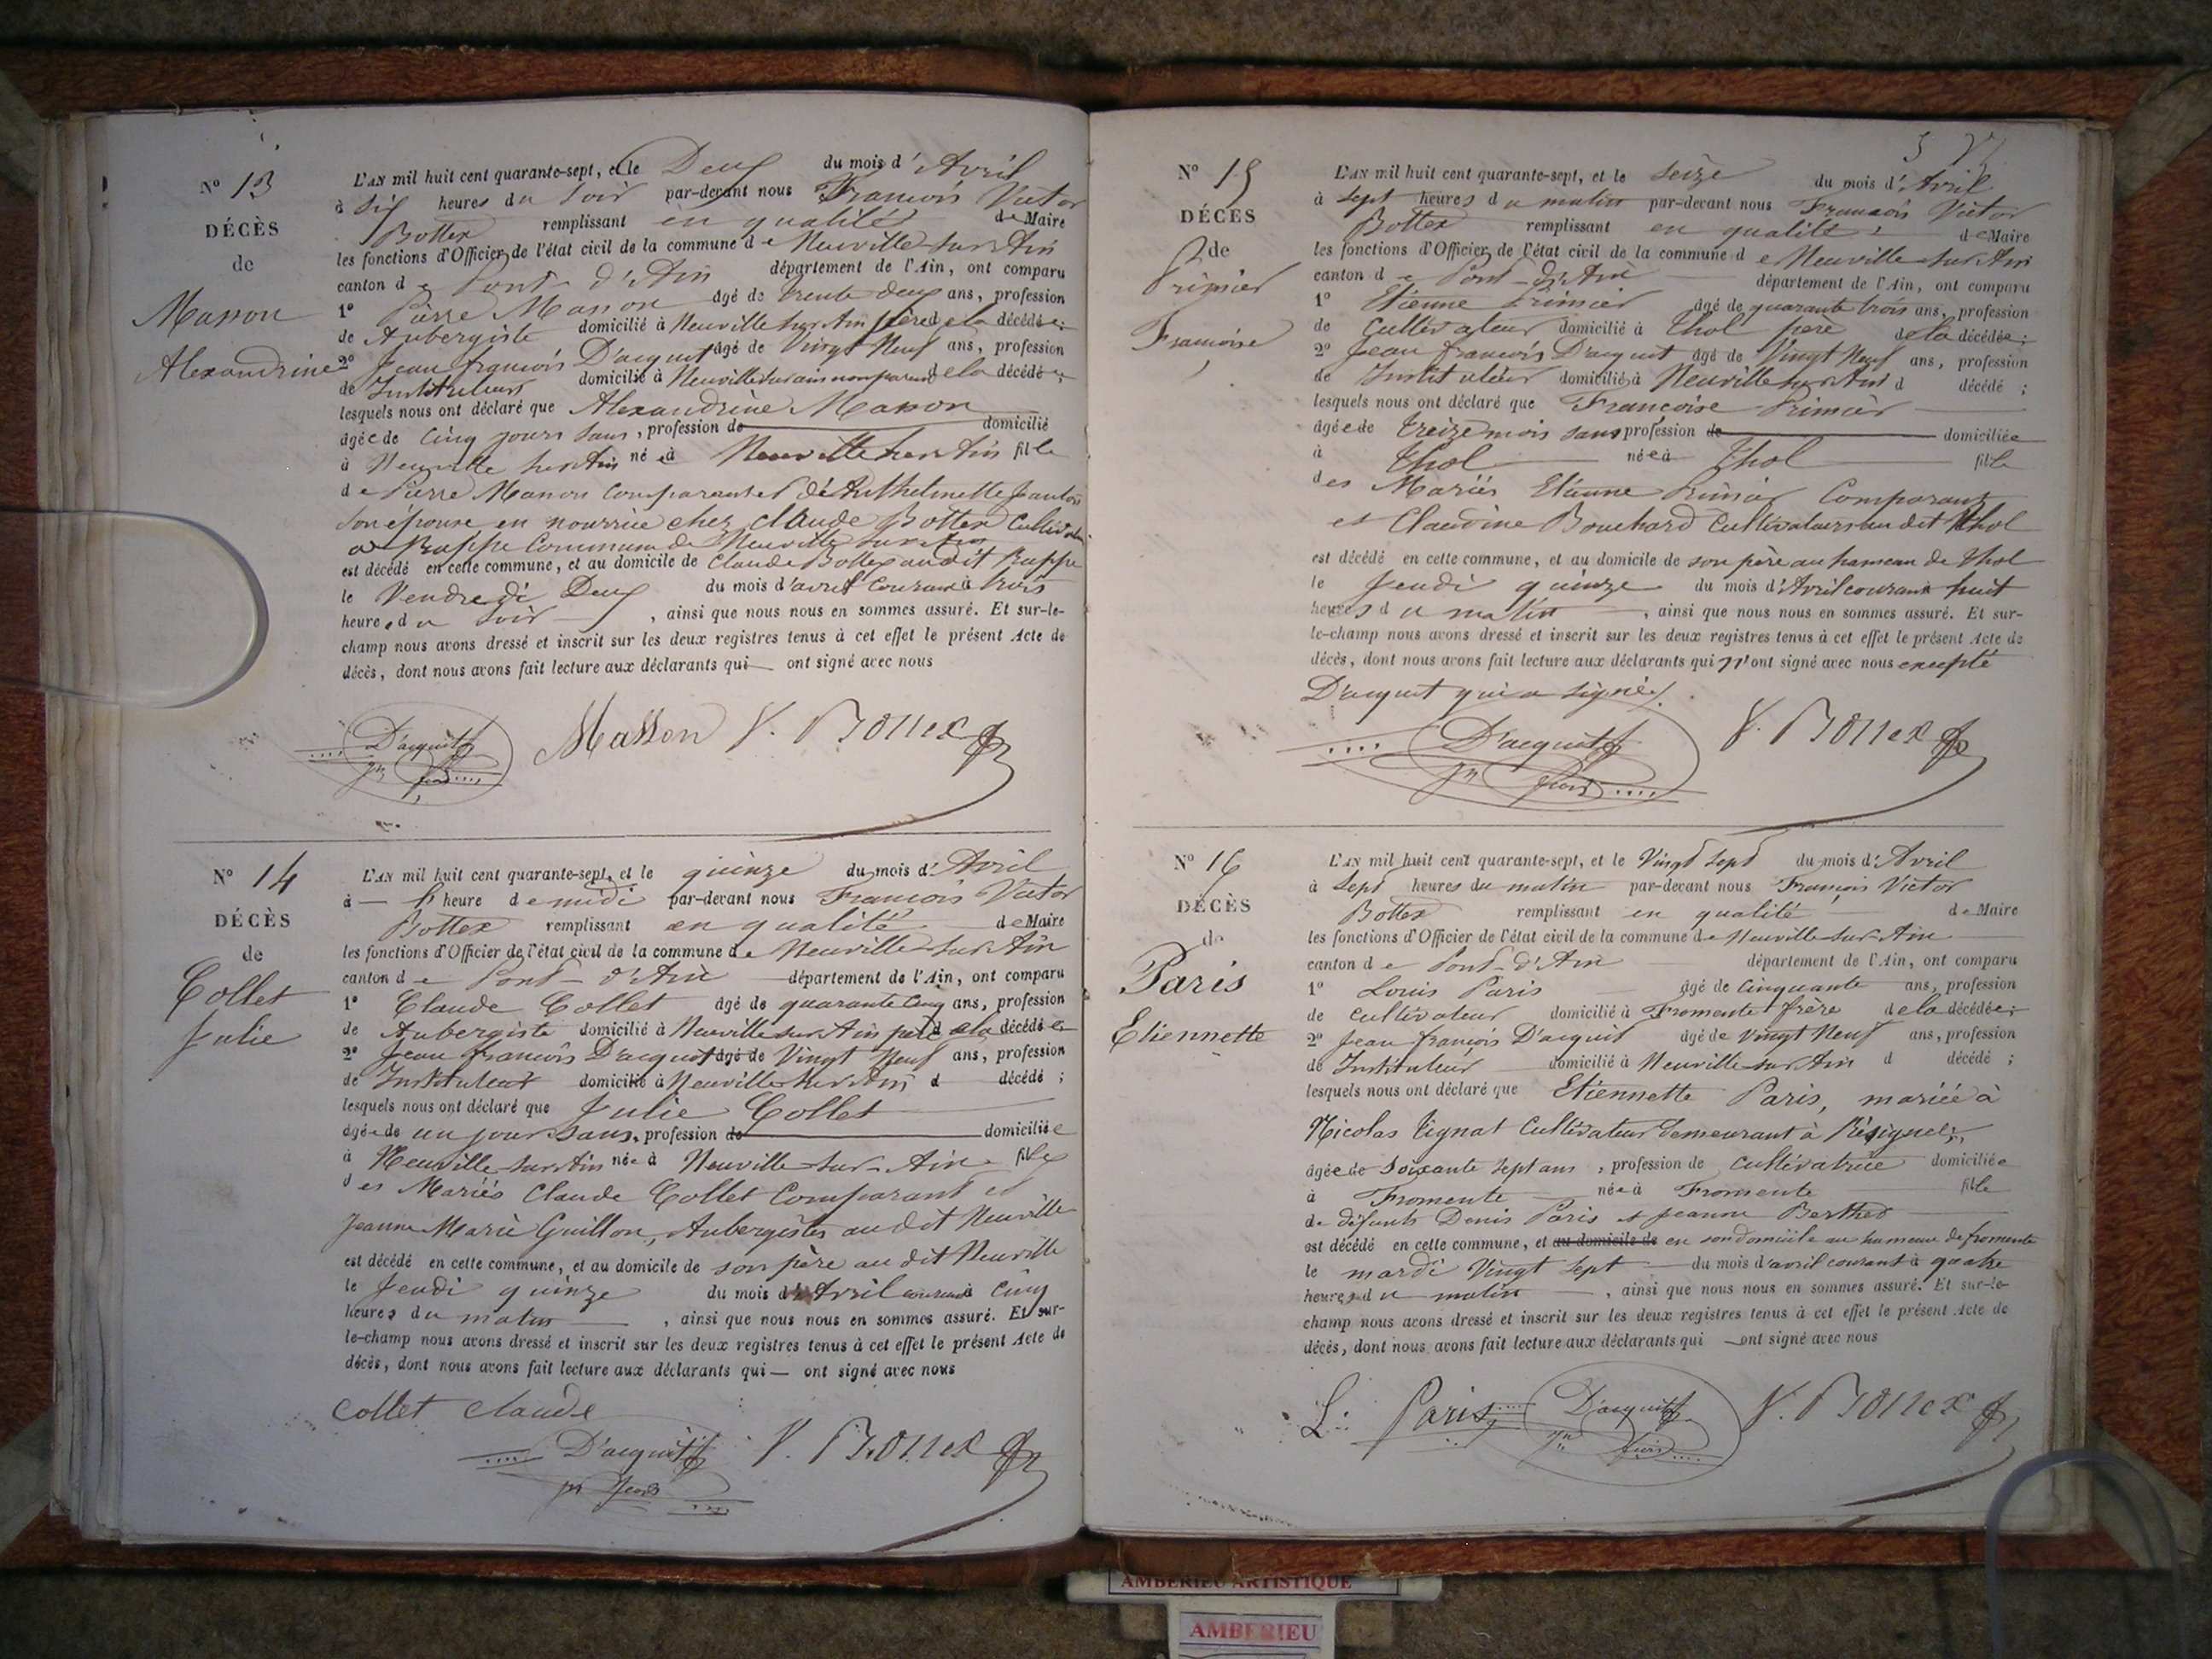 N° 13
DÉCÈS
de
Masson
Alexandrine
L'AN mil huit cent quarante-sept, et le Deux du mois d'Avril
à Six heures du Soir par-devant nous François Victor
Bottex remplissant en qualité de Maire
les fonctions d'Officier de l'état civil de la commune de Neuville sur Ain
canton de Pont-d'Ain département de l'Ain, ont comparu
1° Pierre Masson âgé de trente deux ans, profession
de Aubergiste domicilié à Neuville sur Ain père de la décédée;
2° Jean françois D'acquit âgé de Vingt Neuf ans, profession
de Instituteur domicilié à Neuville sur ain non parent de la décédée
lesquels nous ont déclaré que Alexandrine Masson
âgée de Cinq jours Sans, profession de domicilié
à Neuville sur Ain née à Neuville sur Ain fille
de Pierre Masson Comparant et de Anthelmette
Son épouse en nourrice chez Claude Bottex Cultivateur
a Rappe Commune de Neuville sur Ain
est décédé en cette commune, et au domicile de Claude Bottex au dit Rappe
le Vendredi Deux du mois d'avril Courant à trois
heures du Soir, ainsi que nous nous en sommes assuré. Et sur-le-
champ nous avons dressé et inscrit sur les deux registres tenus à cet effet le présent Acte de
décès, dont nous avons fait lecture aux déclarants qui — ont signé avec nous
D'acquit Masson V. Bottex
jn fcois
N° 14
DÉCÈS
de
Collet
Julie
L'AN mil huit cent quarante-sept, et le quinze du mois d'Avril
à — l'heure de midi par-devant nous François Victor
Bottex remplissant en qualité de Maire
les fonctions d'Officier de l'état civil de la commune de Neuville sur Ain
canton de Pont-d'Ain département de l'Ain, ont comparu
1° Claude Collet âgé de quarante Cinq ans, profession
de Aubergiste domicilié à Neuville sur Ain père de la décédée
2° Jean françois D'acquit âgé de Vingt Neuf ans, profession
de Instituteur domicilié à Neuville sur Ain d décédé ;
lesquels nous ont déclaré que Julie Collet
âgée de un jour Sans, profession de domiciliée
à Neuville sur Ain née à Neuville-sur-Ain fille
des Mariés Claude Collet Comparant et
Jeanne Marie Guillon, Aubergistes au dit Neuville
est décédé en cette commune, et au domicile de son père au dit Neuville
le Jeudi quinze du mois d'Avril courant à Cinq
heures du matin, ainsi que nous nous en sommes assuré. Et sur-
le-champ nous avons dressé et inscrit sur les deux registres tenus à cet effet le présent Acte de
décès, dont nous avons fait lecture aux déclarants qui — ont signé avec nous
Collet Claude
D'acquit V. Bottex
jn fcois
N° 15
DÉCÈS
de
Primier
Françoise
L'AN mil huit cent quarante-sept, et le Seize du mois d'Avril
à Sept heures du matin par-devant nous François Victor
Bottex remplissant en qualité de Maire
les fonctions d'Officier de l'état civil de la commune de Neuville sur Ain
canton de Pont-d'Ain département de l'Ain, ont comparu
1° Etienne Primier âgé de quarante trois ans, profession
de Cultivateur domicilié à Thol père de la décédée;
2° Jean françois D'acquit âgé de Vingt Neuf ans, profession
de Instituteur domicilié à Neuville sur Ain d décédé ;
lesquels nous ont déclaré que Françoise Primier
âgée de treize mois sans profession de domiciliée
à Thol née à Thol fille
des Mariés Etienne Primier Comparant
et Claudine Bouchard Cultivateurs au dit Thol
est décédé en cette commune, et au domicile de son père au hameau de Thol
le Jeudi quinze du mois d'Avril courant huit
heures du matin, ainsi que nous nous en sommes assuré. Et sur-
le-champ nous avons dressé et inscrit sur les deux registres tenus à cet effet le présent Acte de
décès, dont nous avons fait lecture aux déclarants qui n'ont signé avec nous excepté
D'acquit qui a Signé.
D'acquit V. Bottex
jn fcois
N° 16
DÉCÈS
de
Paris
Etiennette
L'AN mil huit cent quarante-sept, et le Vingt Sept du mois d'Avril
à Sept heures du matin par-devant nous François Victor
Bottex remplissant en qualité de Maire
les fonctions d'Officier de l'état civil de la commune de Neuville-sur-Ain
canton de Pont-d'Ain département de l'Ain, ont comparu
1° Louis Paris âgé de Cinquante ans, profession
de Cultivateur domicilié à Fromente frère de la décédée;
2° Jean françois D'acquit âgé de Vingt Neuf ans, profession
de Instituteur domicilié à Neuville sur Ain d décédé ;
lesquels nous ont déclaré que Etiennette Paris, mariée à
Nicolas Tignat Cultivateur demeurant à
âgée de Soixante Sept ans, profession de Cultivatrice domiciliée
à Fromente née à Fromente fille
de défunts Denis Paris et Jeanne Berthet
est décédé en cette commune, et au domicile de en son domicile au hameau de fromente
le mardi Vingt Sept du mois d'avril courant à quatre
heures du matin, ainsi que nous nous en sommes assuré. Et sur-le-
champ nous avons dressé et inscrit sur les deux registres tenus à cet effet le présent Acte de
décès, dont nous avons fait lecture aux déclarants qui — ont signé avec nous
L: Paris D'acquit V. Bottex
jn fcois
AMBERIEU ARTISTIQUE
AMBERIEU